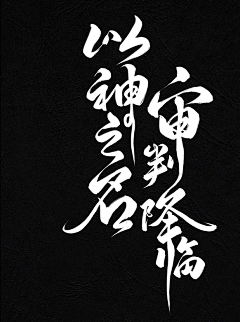 以神之名
审判降临